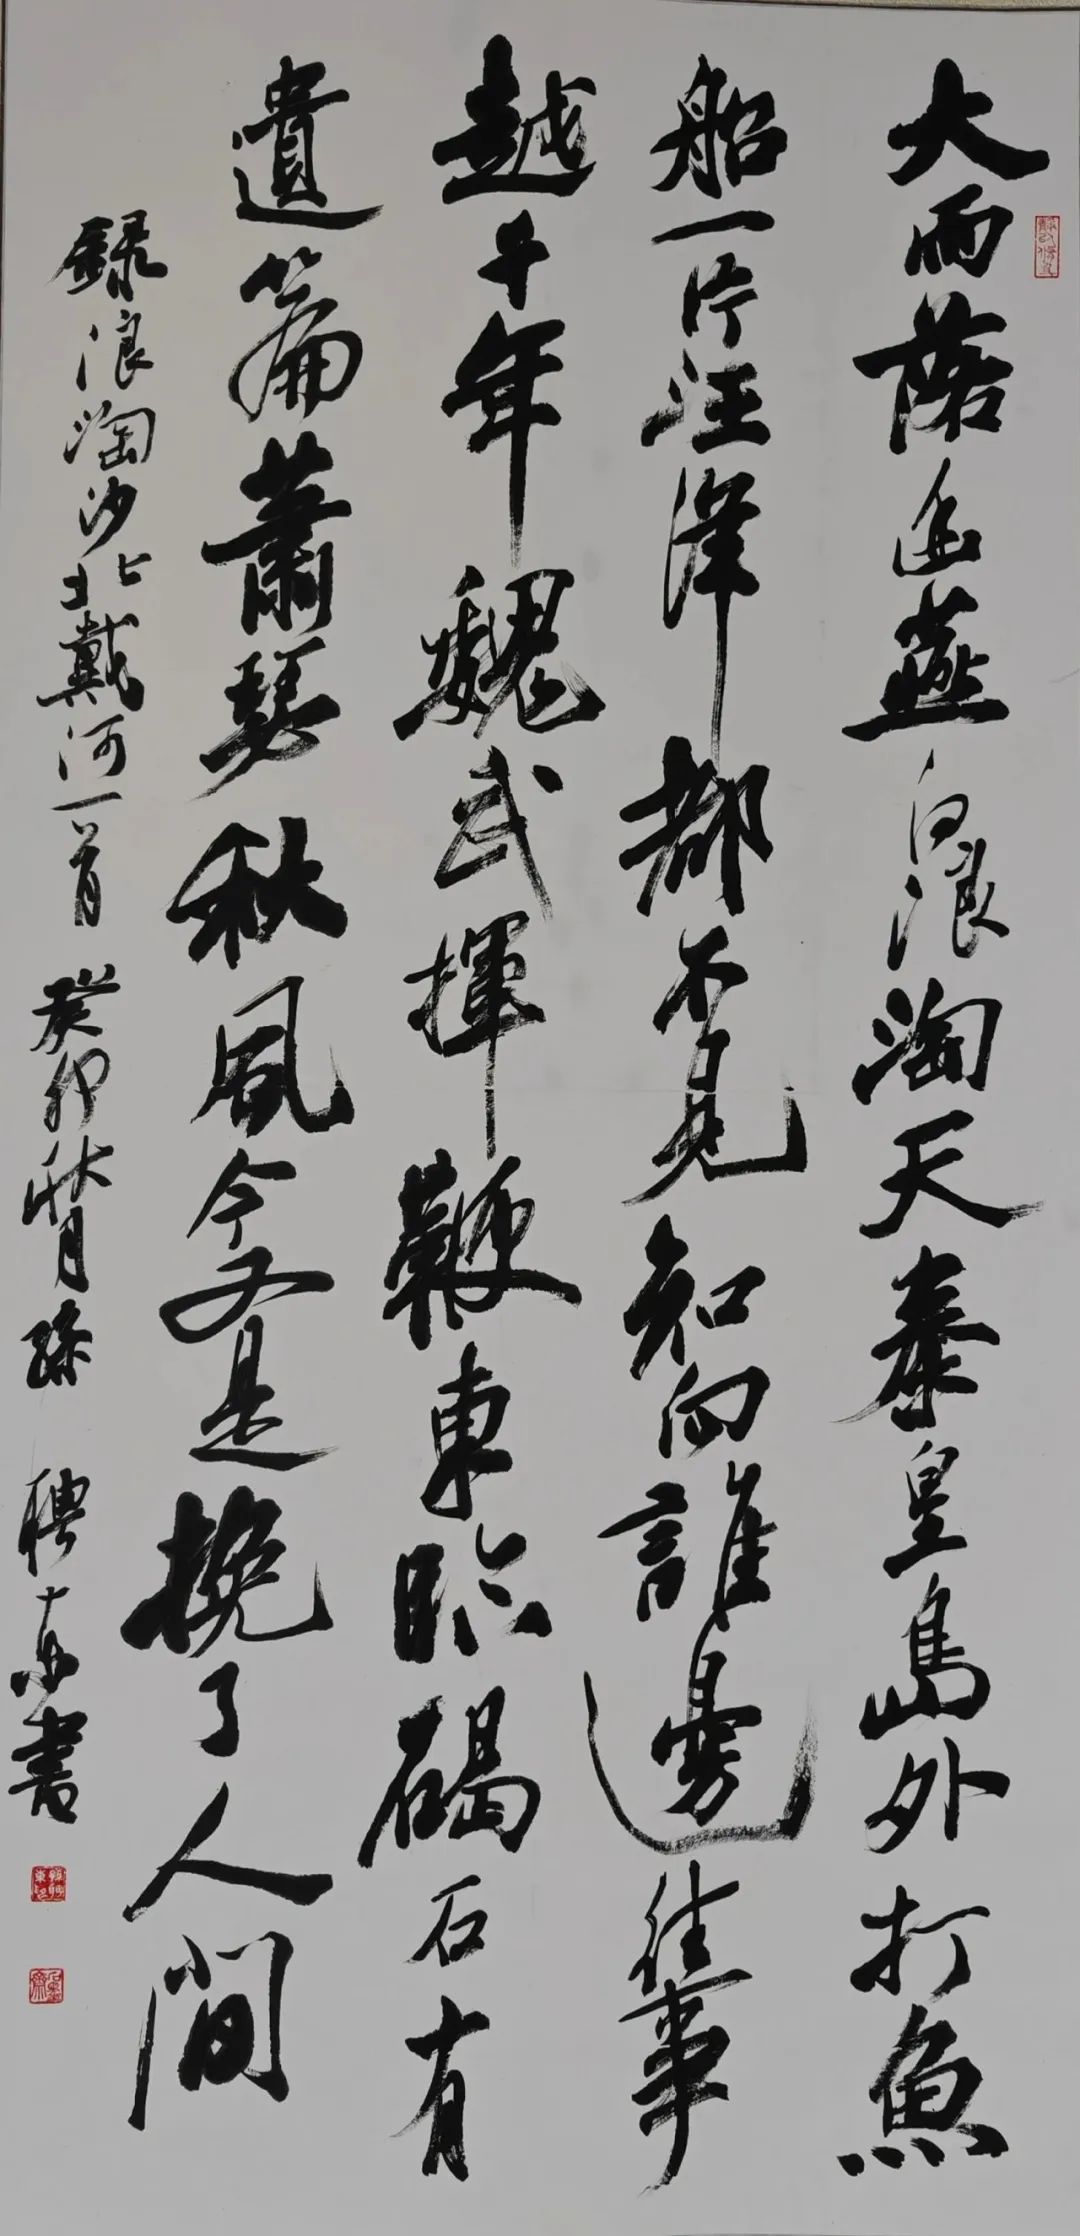 大雨落幽燕白浪淘天秦皇島外打魚
船一片汪洋都不見知向誰邊往事
越千年魏武揮鞭東臨碣石有
遺篇蕭瑟秋風今又是換了人間
錄浪淘沙北戴河一首 癸卯秋月孫聘東書